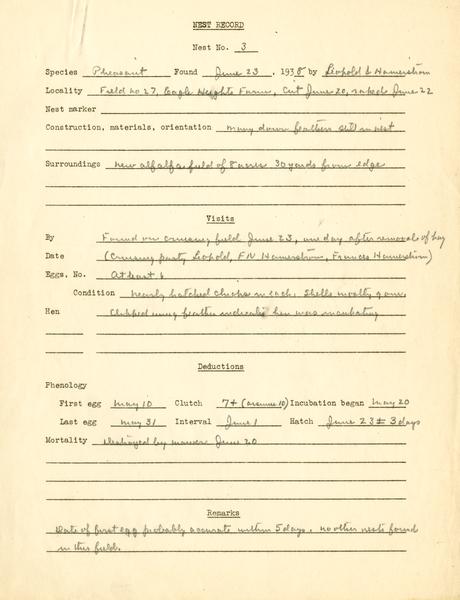 NEST RECORD
Nest No. 3
Species Pheasant Found June 23, 1938 by Leopold & Hamerstrom
Locality Field no 27, Eagle Heights Farm, Cut June 20, raked June 22
Nest marker
Construction, materials, orientation many down feathers still in nest
Surroundings new alfalfa field of 8 acres 30 yards from edge
Visits
By Found on cruising field June 23, one day after removal of hay
Date (Cruising party, Leopold, FN Hamerstrom, Frances Hamerstrom)
Eggs, No. At least 6
Condition nearly hatched chicks in each. Shells mostly gone
Hen Clipped wing feather indicates hen was incubating
Deductions
Phenology
First egg may 10 Clutch 7+ (assume 10) Incubation began may 20
Last egg may 31 Interval June 1 Hatch June 23 ± 3 days
Mortality destroyed by mower June 20
Remarks
Date of first egg probably accurate within 5 days. no other nests found
in this field.